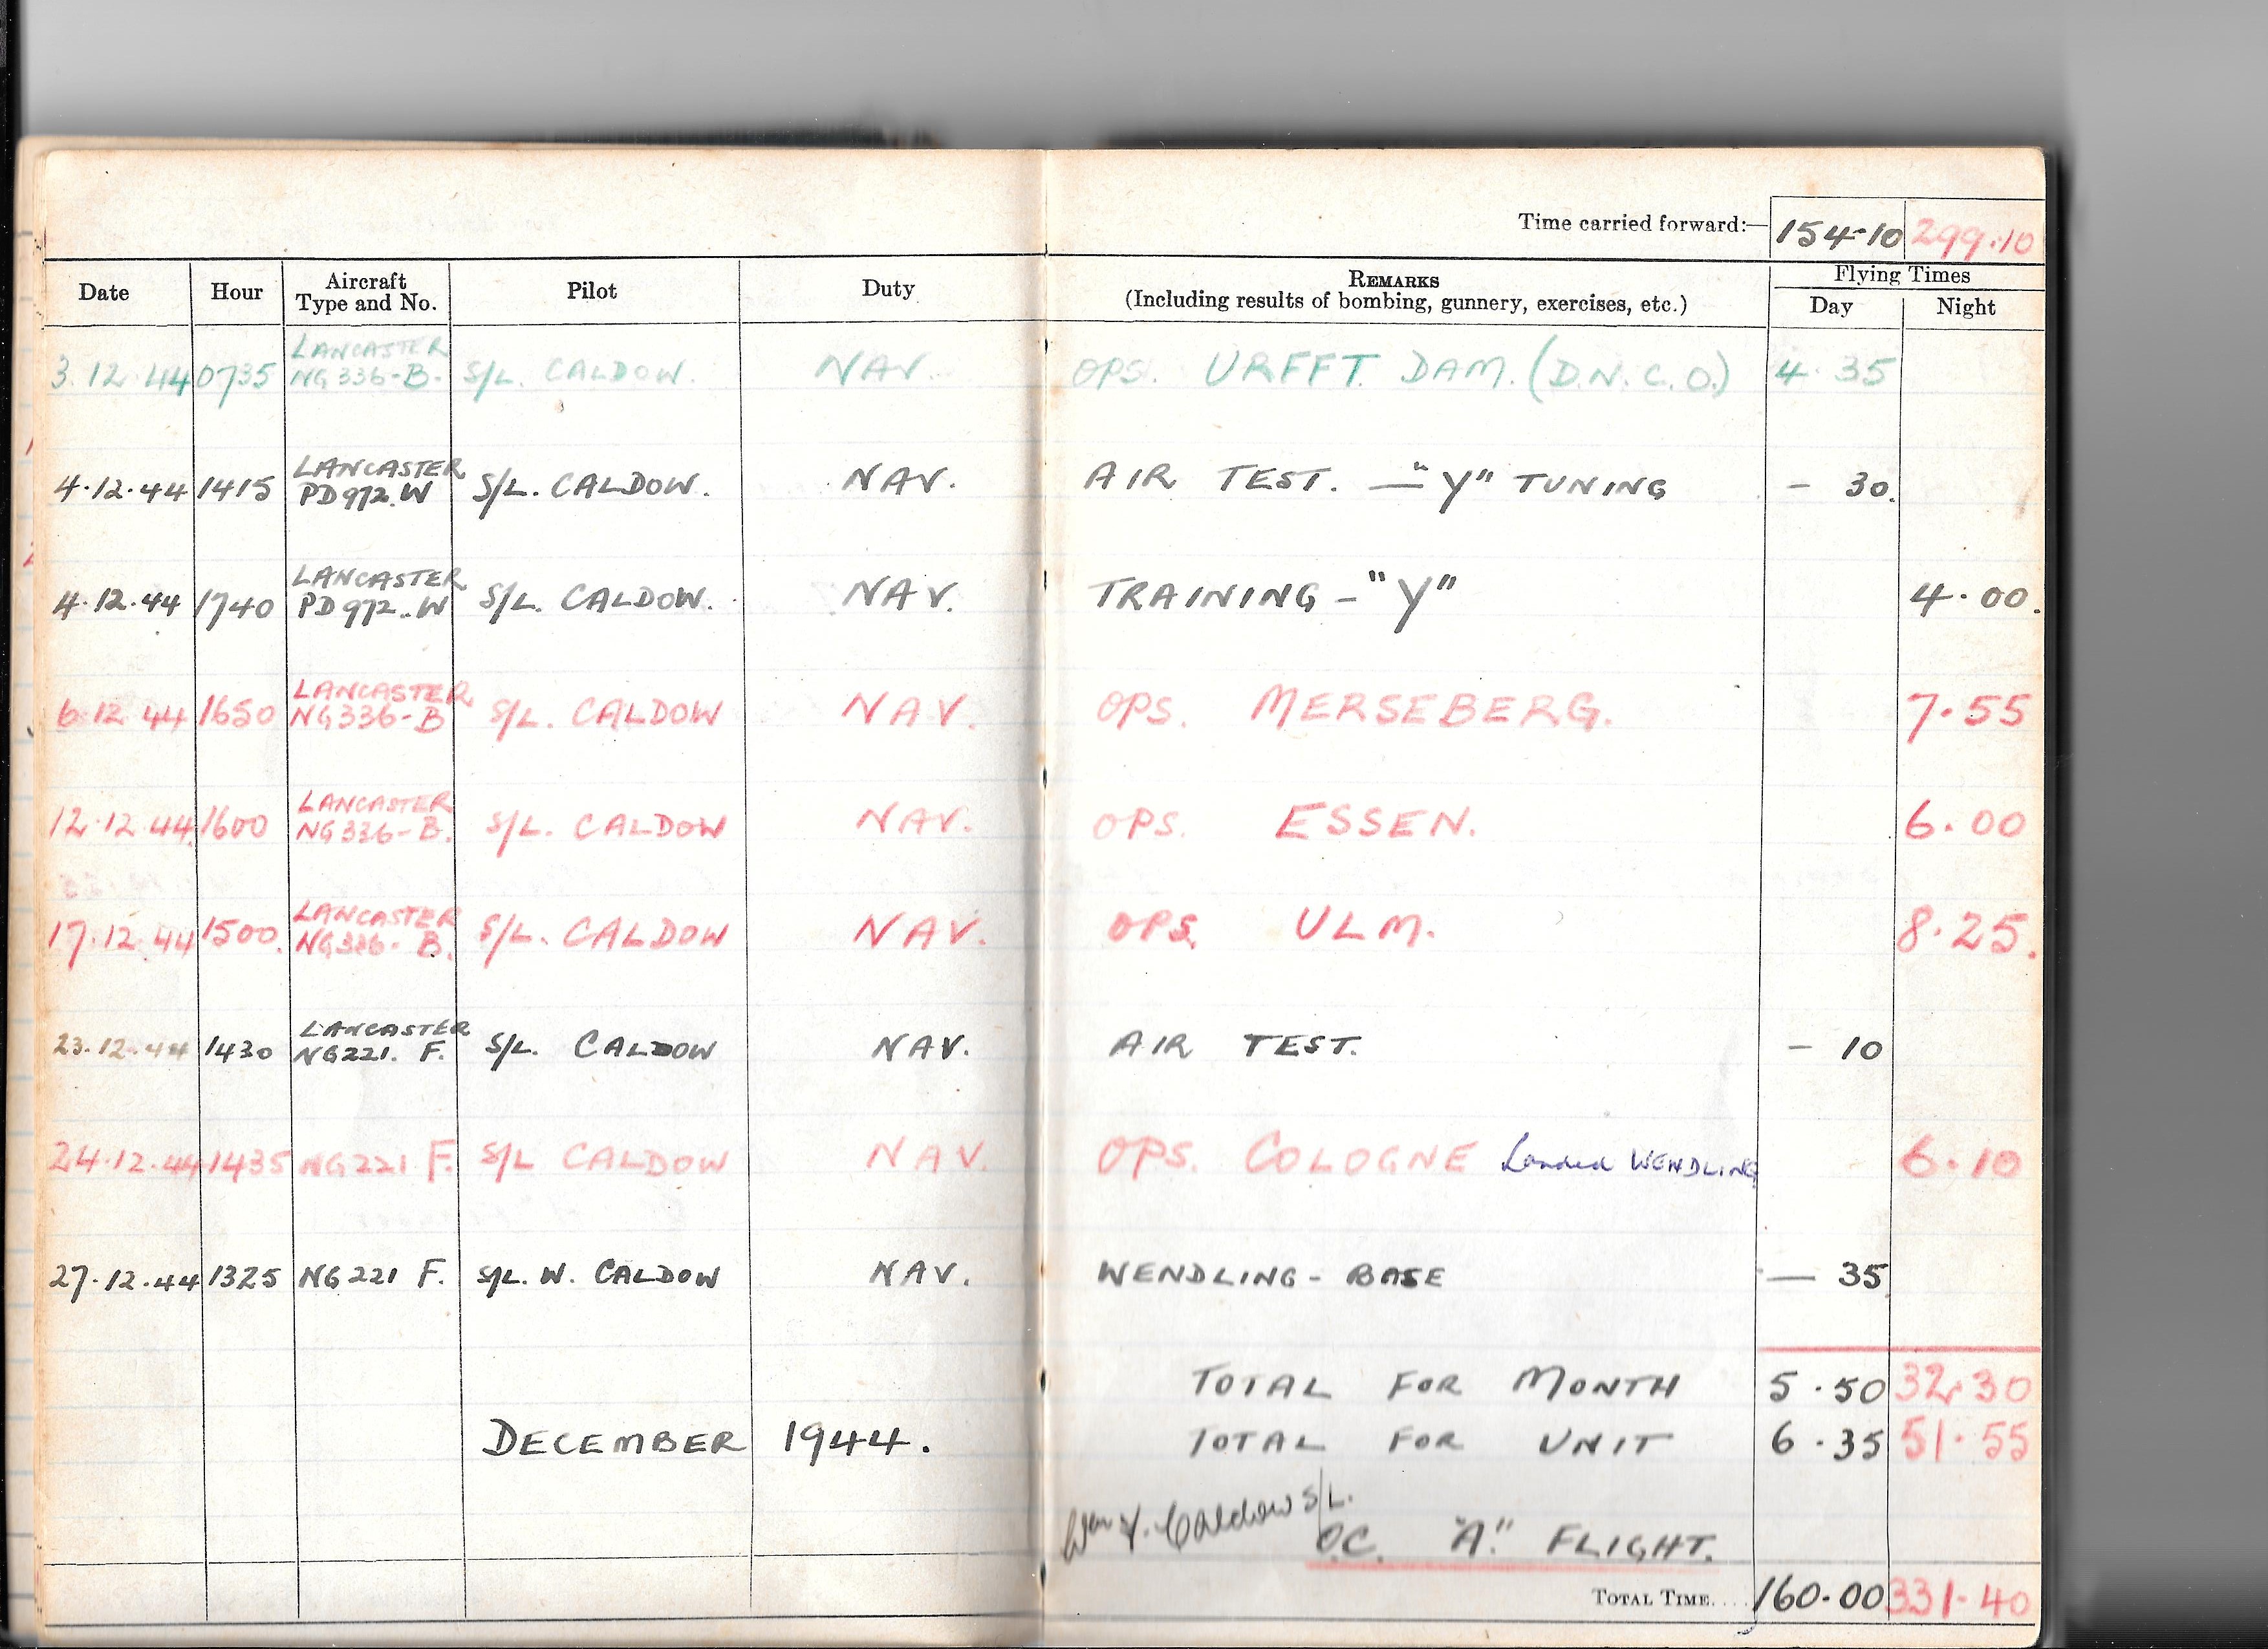 Time carried forward:— 154-10 299.10
Date Hour Aircraft Type and No. Pilot Duty REMARKS (Including results of bombing, gunnery, exercises, etc.) Flying Times Day Night
3.12.44 0735 LANCASTER NG336-B. S/L. CALDOW. NAV. OPS. URFFT DAM. (D.N.C.O.) 4.35
4.12.44 1415 LANCASTER PD972.W S/L. CALDOW. NAV. AIR TEST. — "Y" TUNING - 30.
4.12.44 1740 LANCASTER PD972..W S/L. CALDOW. NAV. TRAINING - "Y" 4.00.
6.12.44 1650 LANCASTER NG336-B S/L. CALDOW NAV. OPS. MERSEBERG. 7.55
12.12.44 1600 LANCASTER NG336-B. S/L. CALDOW NAV. OPS. ESSEN. 6.00
17.12.44 1500. LANCASTER NG336-B. S/L. CALDOW NAV. OPS. ULM. 8.25.
23.12.44 1430 LANCASTER NG221. F. S/L. CALDOW NAV. AIR TEST. - 10
24.12.44 1435 NG221 F. S/L CALDOW NAV. OPS. COLOGNE Landed WENDLING 6.10
27.12.44 1325 NG221 F. S/L. W. CALDOW NAV. WENDLING - BASE — 35
TOTAL FOR MONTH 5.50 32.30
DECEMBER 1944. TOTAL FOR UNIT 6.35 51.55
Wm Y. Caldow S/L.
O.C. "A." FLIGHT.
TOTAL TIME.... 160.00 331.40